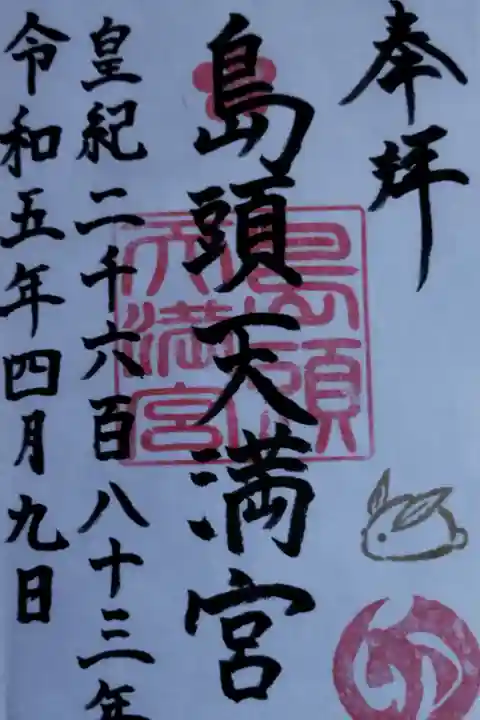 奉拝
島頭天満宮
島頭
天満宮
皇紀二千六百八十三年
令和五年四月九日